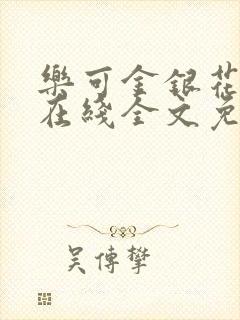 樂可金銀花
在綫全文免
吴傳攀